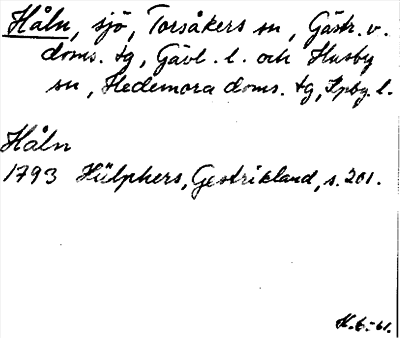 Håln, sjö, Torsåkers sn, Gästr. v.
doms. tg, Gävl. l. och Husby
sn, Hedemora doms. tg, Kpbg. l.
Håln
1793 Hülphers, Gestrikland, s. 201.